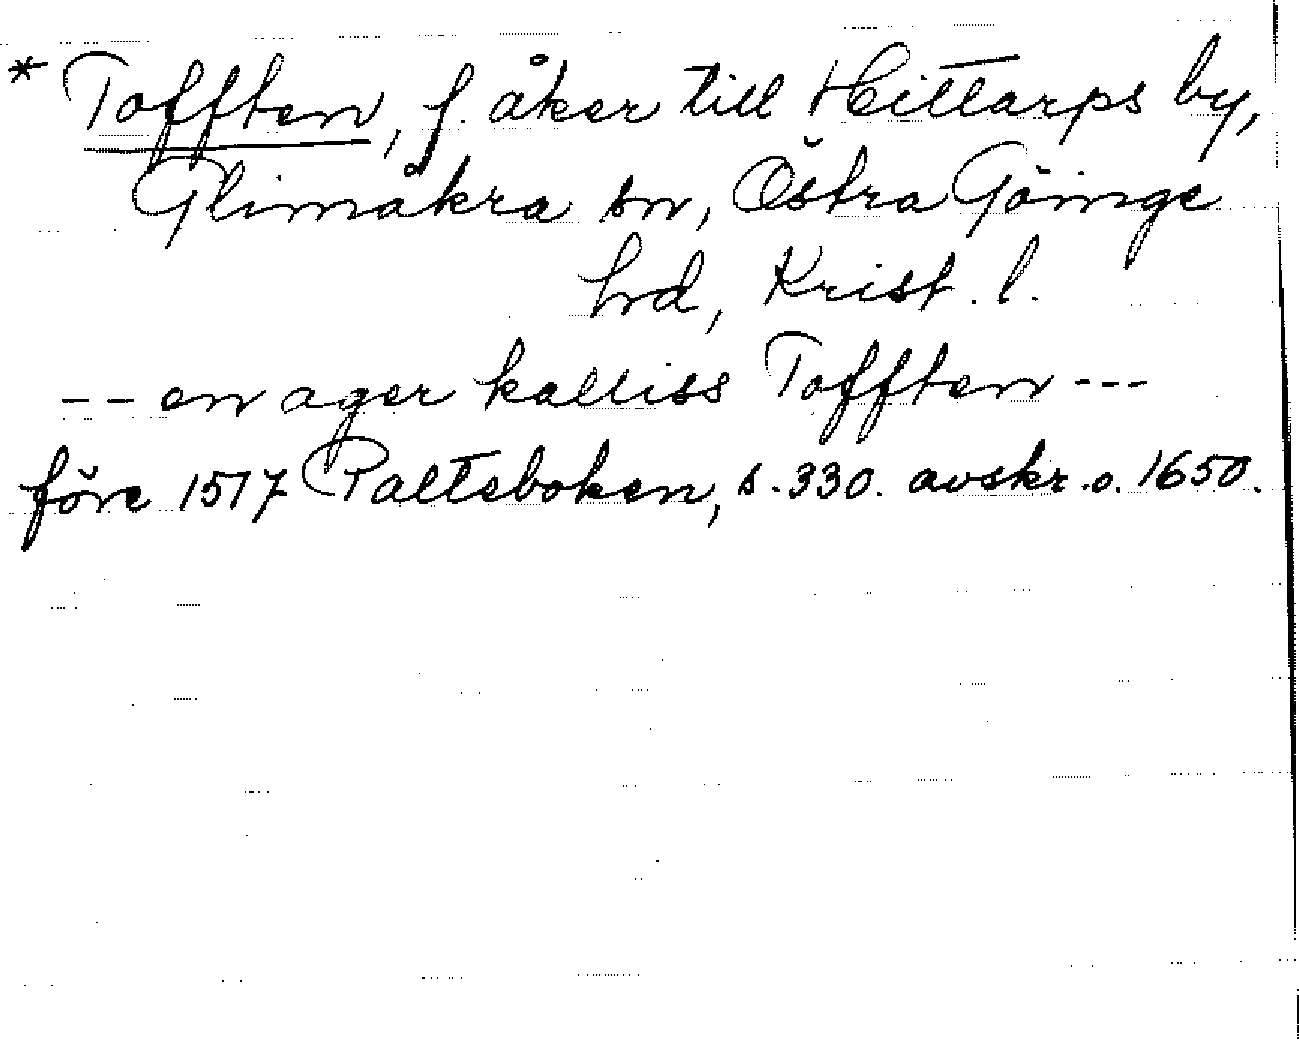 * Tofften, f. åker till Hittarps by,
Glimåkra sn, Östra Göinge
hrd, Krist. l.
-- en ager kalliss Tofften ---
före 1517 Palteboken, s. 330. avskr. o. 1650.